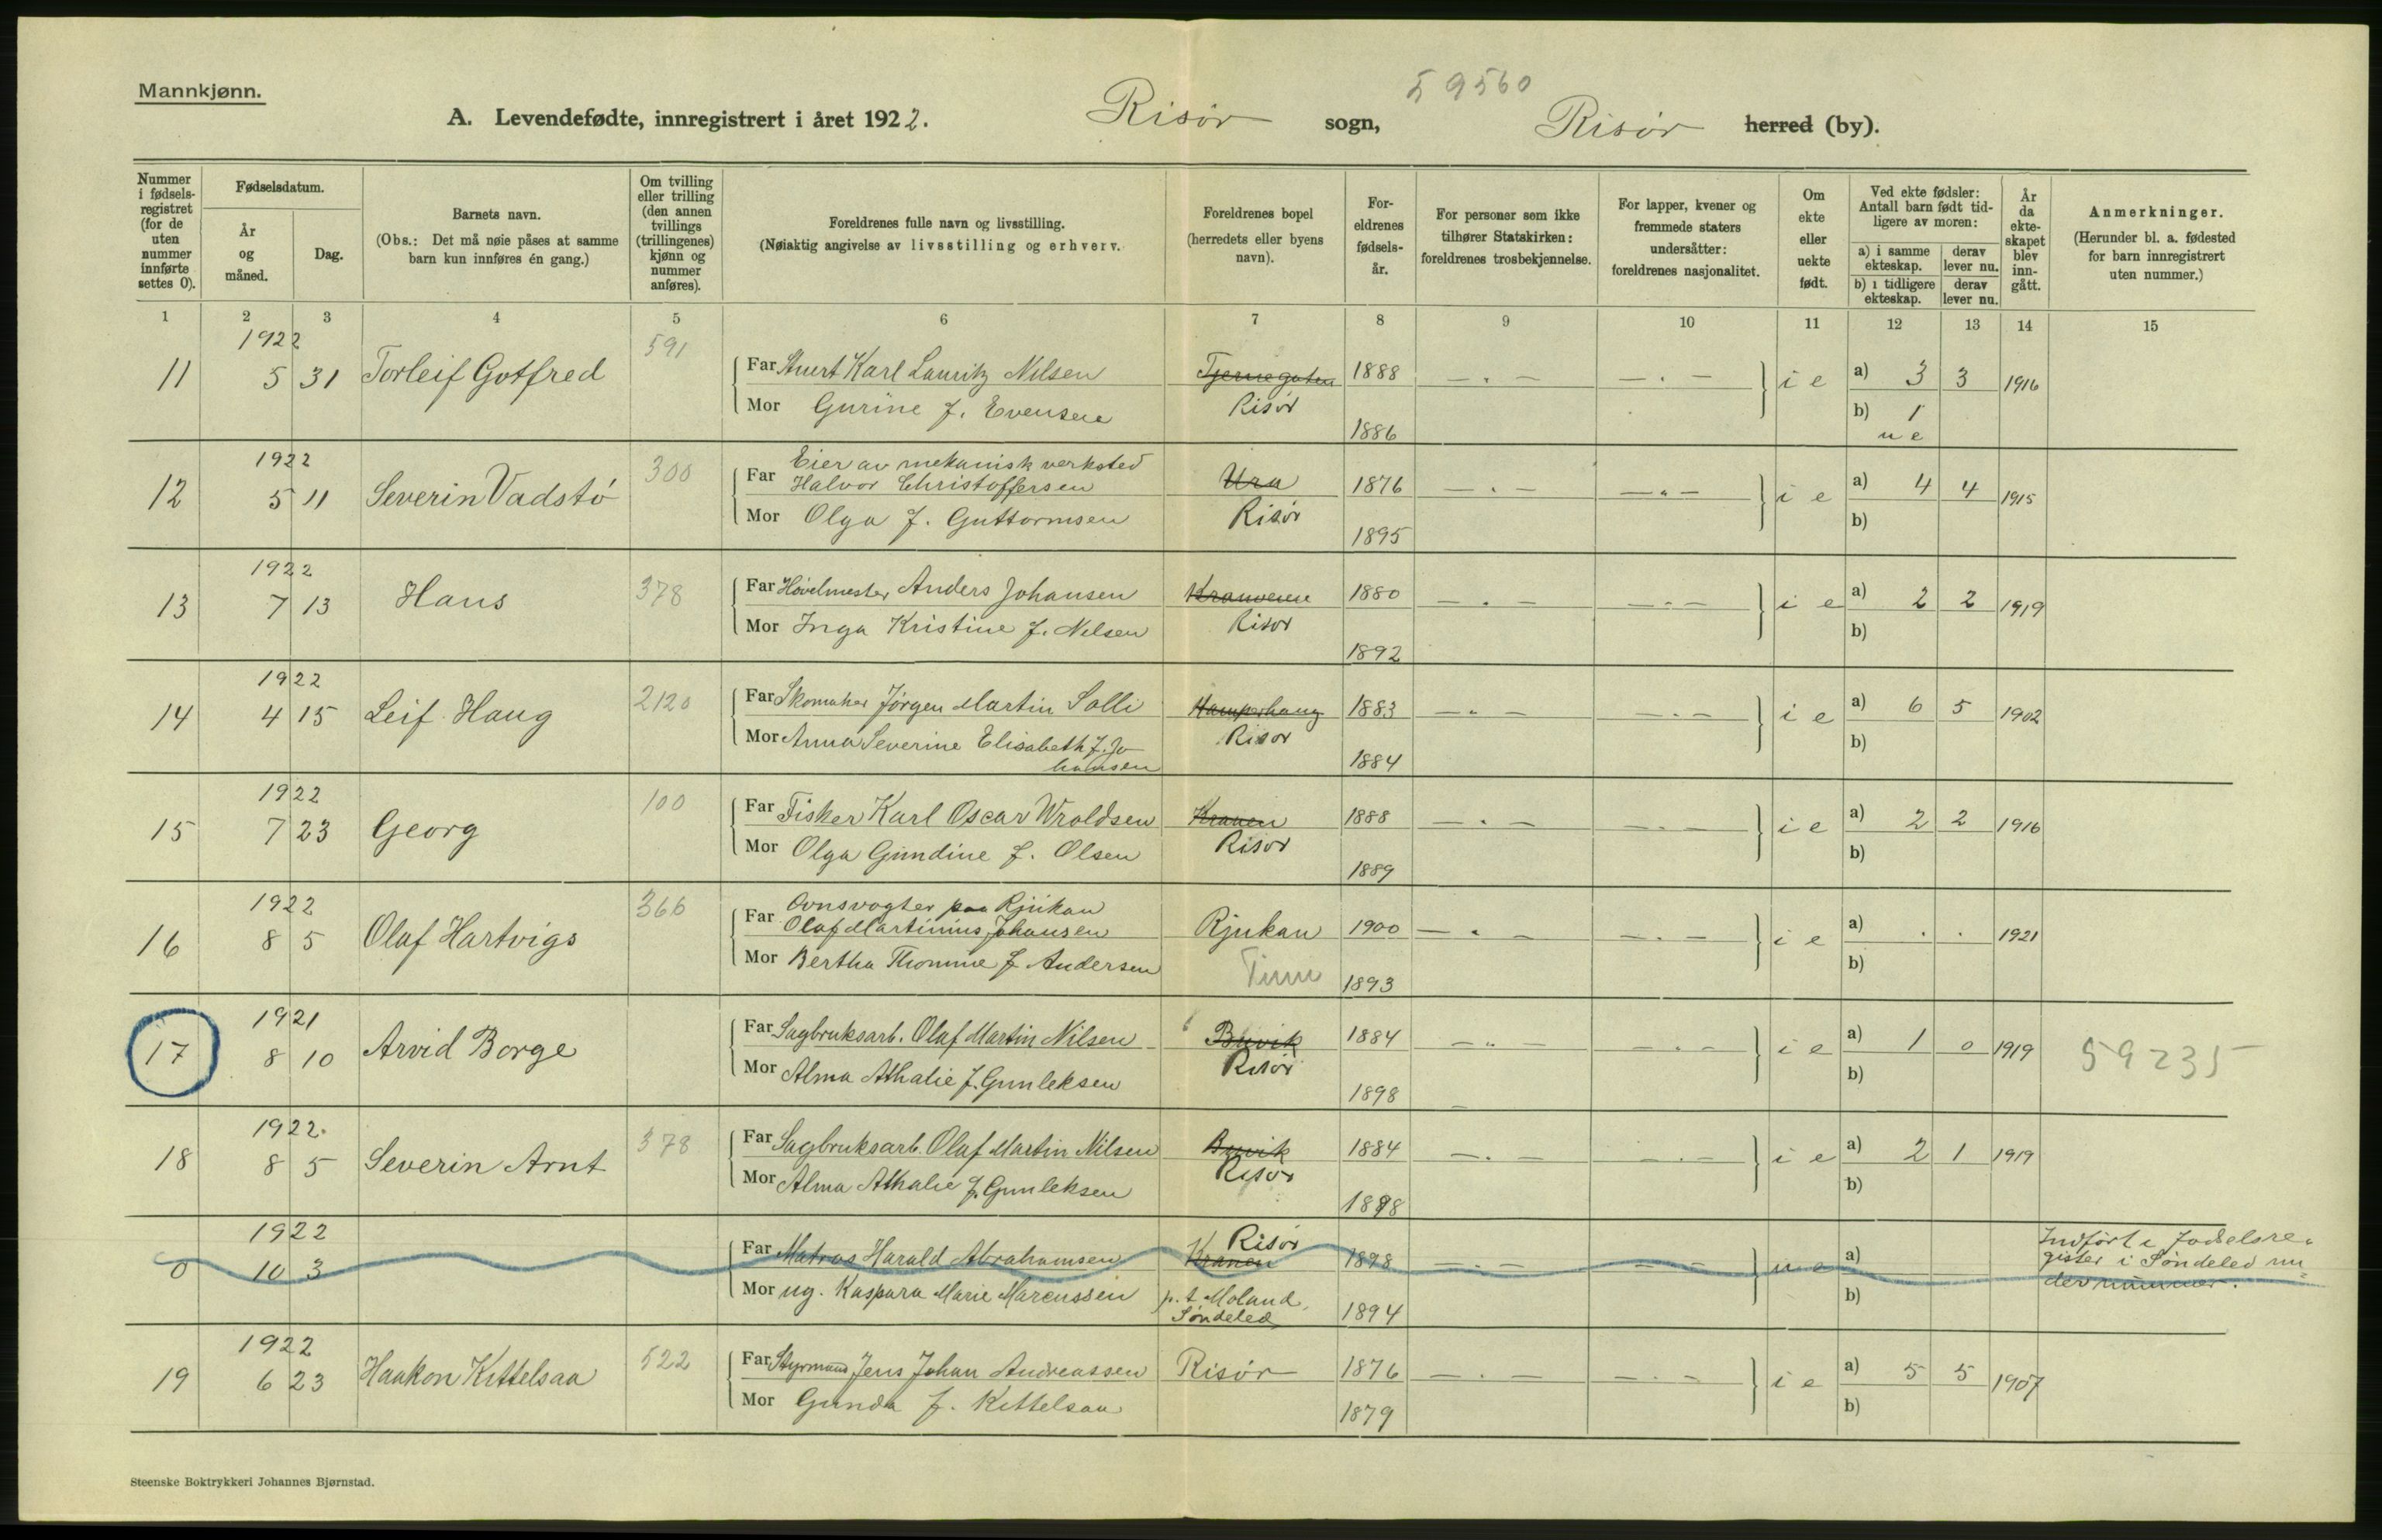 Mannkjønn.
59560
A. Levendefødte, innregistrert i året 1922. Risør sogn, Risør herred (by).
Nummer i fødselsregistret (for de uten nummer innførte settes 0).
Fødselsdatum.
År og måned.
Dag.
Barnets navn.
(Obs.: Det må nøie påses at samme barn kun innføres én gang.)
Om tvilling eller trilling (den annen tvillings (trillingenes) kjønn og nummer anføres).
Foreldrenes fulle navn og livsstilling.
(Nøiaktig angivelse av livsstilling og erhverv.
Foreldrenes bopel (herredets eller byens navn).
Foreldrenes fødselsår.
For personer som ikke tilhører Statskirken: foreldrenes trosbekjennelse.
For lapper, kvener og fremmede staters undersåtter: foreldrenes nasjonalitet.
Om ekte eller uekte født.
Ved ekte fødsler: Antall barn født tidligere av moren:
a) i samme ekteskap. derav lever nu.
b) i tidligere ekteskap. derav lever nu.
År da ekteskapet blev inngått.
Anmerkninger.
(Herunder bl. a. fødested for barn innregistrert uten nummer.)
1 2 3 4 5 6 7 8 9 10 11 12 13 14 15
1922
11 5 31 Torleif Gotfred 591 Far Stuert Karl Lauritz Nilsen Tjernegaten 1888 — . — — . — i e a) 3 3 1916
Mor Gurine f. Evensen Risør 1886 b) 1
u e
1922 Eier av mekanisk verksted
12 5 11 Severin Vadstø 300 Far Halvor Christoffersen Ura 1876 — . — — . — i e a) 4 4 1915
Mor Olga f. Guttormsen Risør 1895 b)
1922
13 7 13 Hans 378 Far Høvelmester Anders Johansen Kranveien 1880 — . — — . — i e a) 2 2 1919
Mor Inga Kristine f. Nilsen Risør 1892 b)
1922
14 4 15 Leif Haug 2120 Far Skomaker Jørgen Martin Solli Hamperhaug 1883 — . — — . — i e a) 6 5 1902
Mor Anna Severine Elisabeth f. Jo- Risør b)
hansen 1884
1922
15 7 23 Georg 100 Far Fisker Karl Oscar Wroldsen Kranen 1888 — . — — . — i e a) 2 2 1916
Mor Olga Gundine f. Olsen Risør 1889 b)
1922 Ovnsvogter paa Rjukan
16 8 5 Olaf Hartvigs 366 Far Olaf Martinius Johansen Rjukan 1900 — . — — . — i e a) . . 1921
Mor Bertha Thomine f Andersen Tinn 1893 b)
1921
17 8 10 Arvid Borge Far Sagbruksarb. Olaf Martin Nilsen Buvik 1884 — . — — . — i e a) 1 0 1919 59235
Mor Alma Athalie f. Gunleksen Risør 1898 b)
1922.
18 8 5 Severin Arnt 378 Far Sagbruksarb. Olaf Martin Nilsen Buvik 1884 — . — — . — i e a) 2 1 1919
Mor Alma Athalie f. Gunleksen Risør 1898 b)
1922 Risør Indført i fødselsre-
0 10 3 Far Matros Harald Abrahamsen Kranen 1898 — . — — — u e a) gister i Søndeled un-
der nummer.
Mor ug. Kaspara Marie Marcussen p.t Moland, 1894 b)
Søndeled
1922
19 6 23 Haakon Kittelsaa 522 Far Styrmand Jens Johan Andreassen Risør 1876 — . — — . — i e a) 5 5 1907
Mor Gunda f. Kittelsaa 1879 b)
Steenske Boktrykkeri Johannes Bjørnstad.